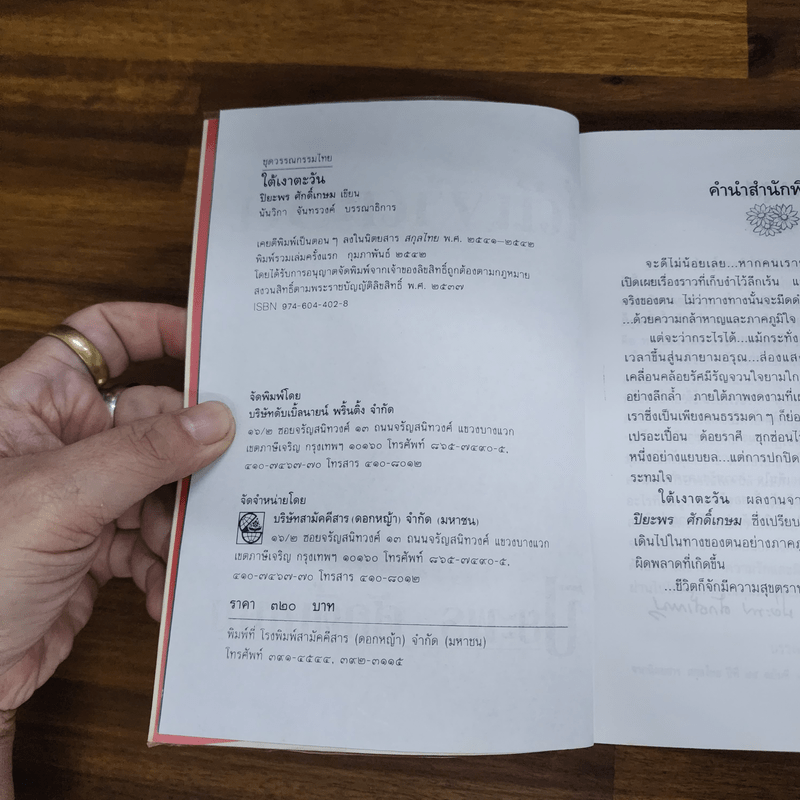 ชุดวรรณกรรมไทย
ใต้เงาตะวัน
ปิยะพร ศักดิ์เกษม เขียน
นันวิกา จันทรวงศ์ บรรณาธิการ
เคยตีพิมพ์เป็นตอนๆ ลงในนิตยสาร สกุลไทย พ.ศ. ๒๕๔๑–๒๕๔๒
พิมพ์รวมเล่มครั้งแรก กุมภาพันธ์ ๒๕๔๒
โดยได้รับการอนุญาตจัดพิมพ์จากเจ้าของลิขสิทธิ์ถูกต้องตามกฎหมาย
สงวนสิทธิ์ตามพระราชบัญญัติลิขสิทธิ์ พ.ศ. ๒๕๓๗
ISBN 974-604-402-8
จัดพิมพ์โดย
บริษัทดับเบิ้ลนายน์ พริ้นติ้ง จำกัด
๑๖/๒ ซอยจรัญสนิทวงศ์ ๑๓ ถนนจรัญสนิทวงศ์ แขวงบางแวก
เขตภาษีเจริญ กรุงเทพฯ ๑๐๑๖๐ โทรศัพท์ ๘๖๕-๗๔๙๐-๕,
๔๑๐-๗๔๖๗-๗๐ โทรสาร ๔๑๐-๘๐๑๒
จัดจำหน่ายโดย
บริษัทสามัคคีสาร (ดอกหญ้า) จำกัด (มหาชน)
๑๖/๒ ซอยจรัญสนิทวงศ์ ๑๓ ถนนจรัญสนิทวงศ์ แขวงบางแวก
เขตภาษีเจริญ กรุงเทพฯ ๑๐๑๖๐ โทรศัพท์ ๘๖๕-๗๔๙๐-๕,
๔๑๐-๗๔๖๗-๗๐ โทรสาร ๔๑๐-๘๐๑๒
ราคา ๓๒๐ บาท
พิมพ์ที่ โรงพิมพ์สามัคคีสาร (ดอกหญ้า) จำกัด (มหาชน)
โทรศัพท์ ๓๙๑-๔๕๔๔, ๓๙๒-๓๑๑๕
คำนำสำนักพิ
จะดีไม่น้อยเลย...หากคนเรา
เปิดเผยเรื่องราวที่เก็บงำไว้ลึกเร้น
จริงของตน ไม่ว่าทางทางนั้นจะมืด
...ด้วยความกล้าหาญและภาคภูมิใจ
แต่จะว่ากระไรได้...แม้กระทั่ง
เวลาขึ้นสู่นภายามอรุณ...ส่องแส
เคลื่อนคล้อยรัศมีรัญจวนใจยามไก
อย่างลึกล้ำ ภายใต้ภาพงดงามที่
เราซึ่งเป็นเพียงคนธรรมดาๆ ก็ย่อ
เปรอะเปื้อน ด้อยราศี ซุกซ่อน
หนึ่งอย่างแยบยล...แต่การปกปิด
ระทมใจ
ใต้เงาตะวัน ผลงานจา
ปิยะพร ศักดิ์เกษม ซึ่งเปรียบ
เดินไปในทางของตนอย่างภาคภู
ผิดพลาดที่เกิดขึ้น
...ชีวิตก็จักมีความสุขตรา